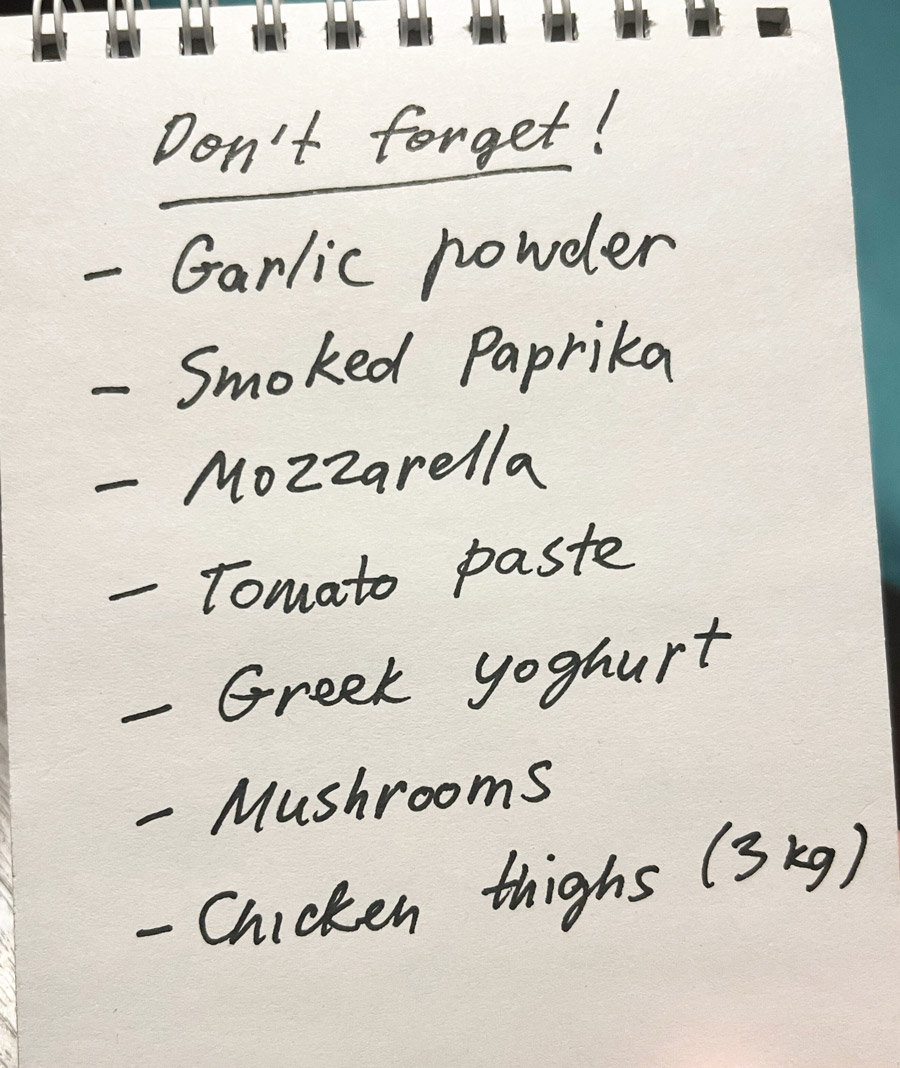 Don't forget!
- Garlic powder
- Smoked Paprika
- Mozzarella
- Tomato paste
- Greek yoghurt
- Mushrooms
- Chicken thighs (3 kg)